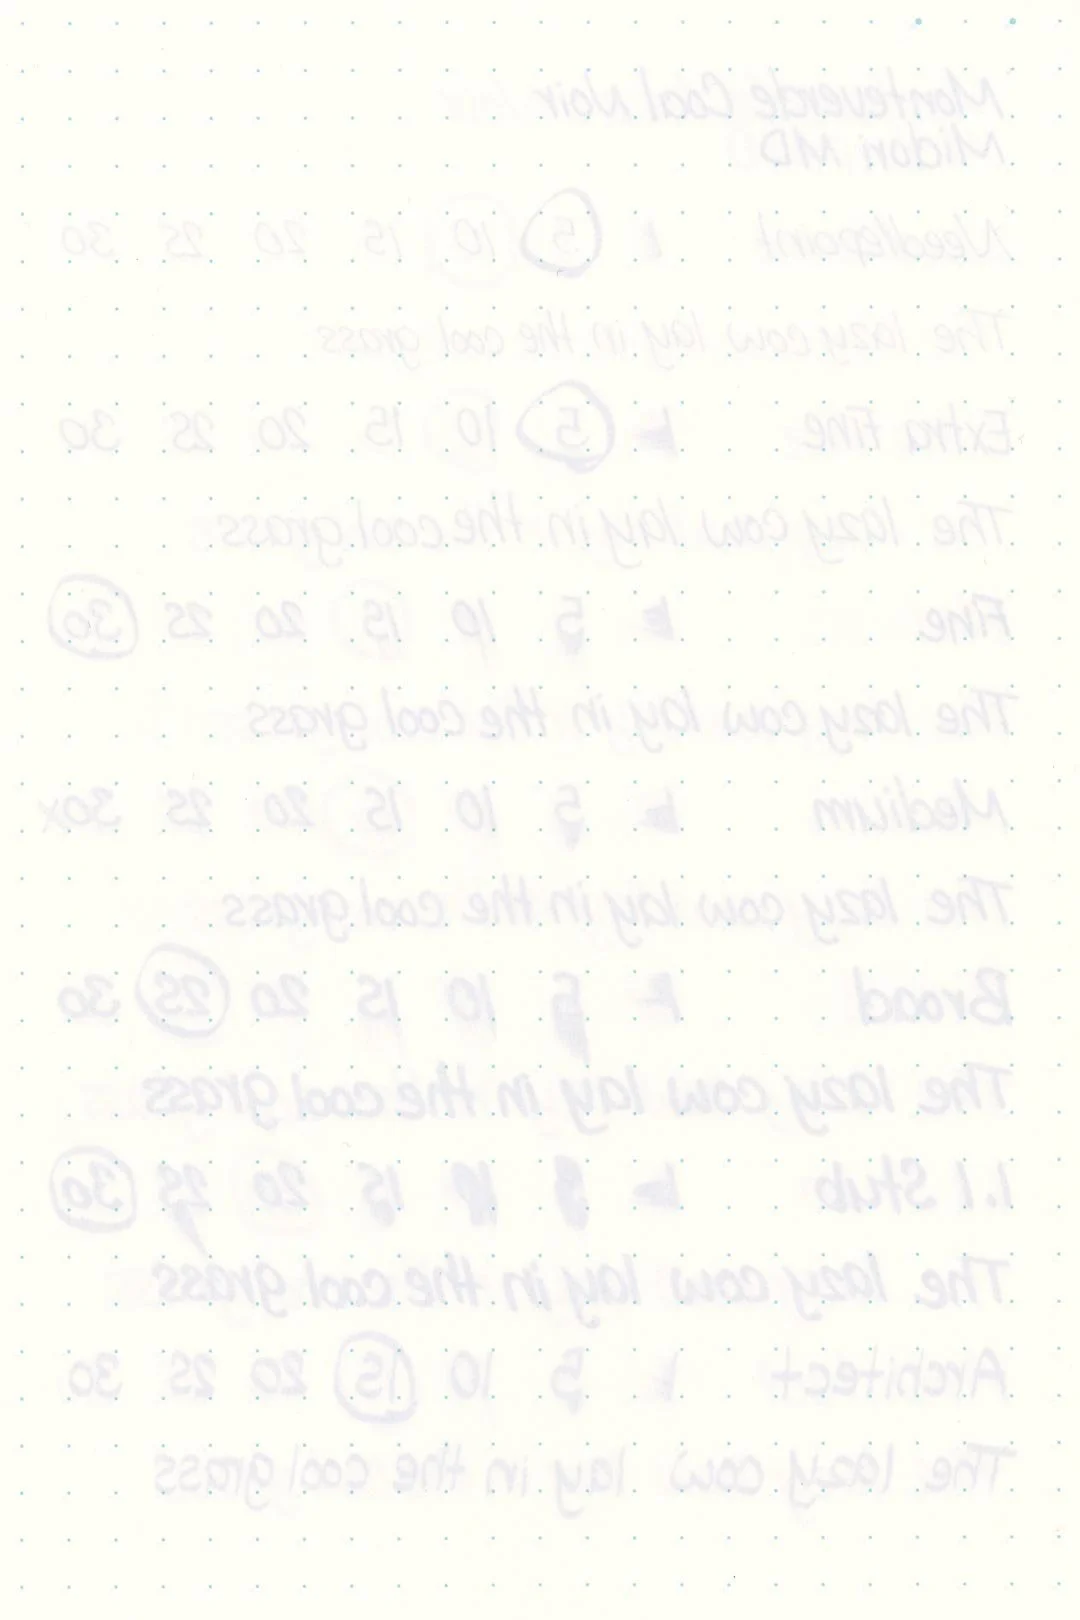 Monteverde Cool Noir
Midori MD
Needlepoint 5 10 15 20 25 30
The lazy cow lay in the cool grass
Extra Fine 5 10 15 20 25 30
The lazy cow lay in the cool grass
Fine 5 10 15 20 25 30
The lazy cow lay in the cool grass
Medium 5 10 15 20 25 30x
The lazy cow lay in the cool grass
Broad 5 10 15 20 25 30
The lazy cow lay in the cool grass
1.1 Stub 5 10 15 20 25 30
The lazy cow lay in the cool grass
Architect 5 10 15 20 25 30
The lazy cow lay in the cool grass